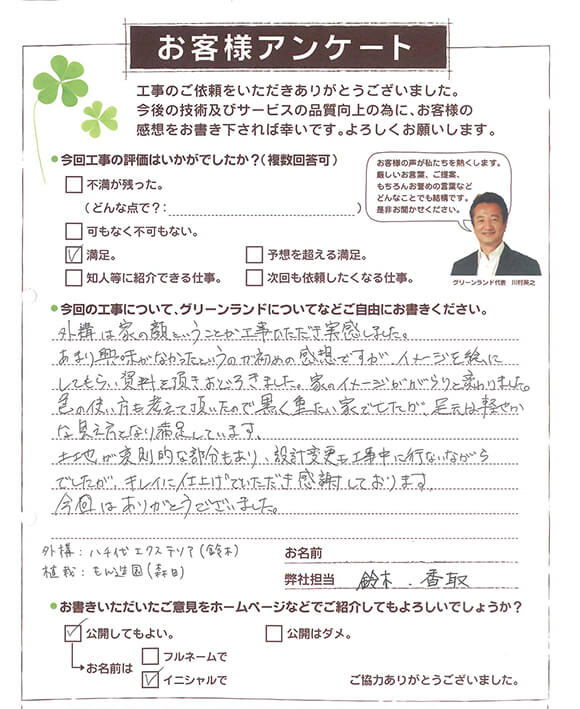 お客様アンケート
工事のご依頼をいただきありがとうございました。
今後の技術及びサービスの品質向上の為に、お客様の
感想をお書き下されば幸いです。よろしくお願いします。
●今回工事の評価はいかがでしたか？(複数回答可)
不満が残った。
(どんな点で？: )
可もなく不可もない。
満足。
予想を超える満足。
知人等に紹介できる仕事。
次回も依頼したくなる仕事。
お客様の声が私たちを熱くします。
厳しいお言葉、ご提案、
もちろんお誉めの言葉など
どんなことでも結構です。
是非お聞かせください。
グリーンランド代表 川村英之
●今回の工事について、グリーンランドについてなどご自由にお書きください。
外構は家の顔ということが工事いただき実感しました。
あまり興味がなかったというのが初めの感想ですが、イメージを絵に
してもらい資料を頂きおどろきました。家のイメージががらりと変わりました。
色の使い方も考えて頂いたので黒く重たい家でしたが、足元は軽やか
な見え方となり満足しています。
土地が変則的な部分もあり、設計変更も工事中に行ないながら
でしたが、キレイに仕上げていただき感謝しております。
今回はありがとうございました。
外構:ハチ代エクステリア(鈴木)
植栽:もん造園(森田)
お名前
弊社担当 鈴木.香取
●お書きいただいたご意見をホームページなどでご紹介してもよろしいでしょうか？
公開してもよい。
公開はダメ。
お名前は
フルネームで
イニシャルで
ご協力ありがとうございました。